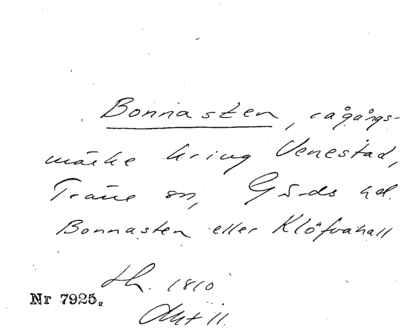 Bonnasten, rågångs-
märke kring Venestad,
Träne sn, Gärds hd.
Bonnasten eller Klöfvahall
1810
Nr 7925.
Akt 11.